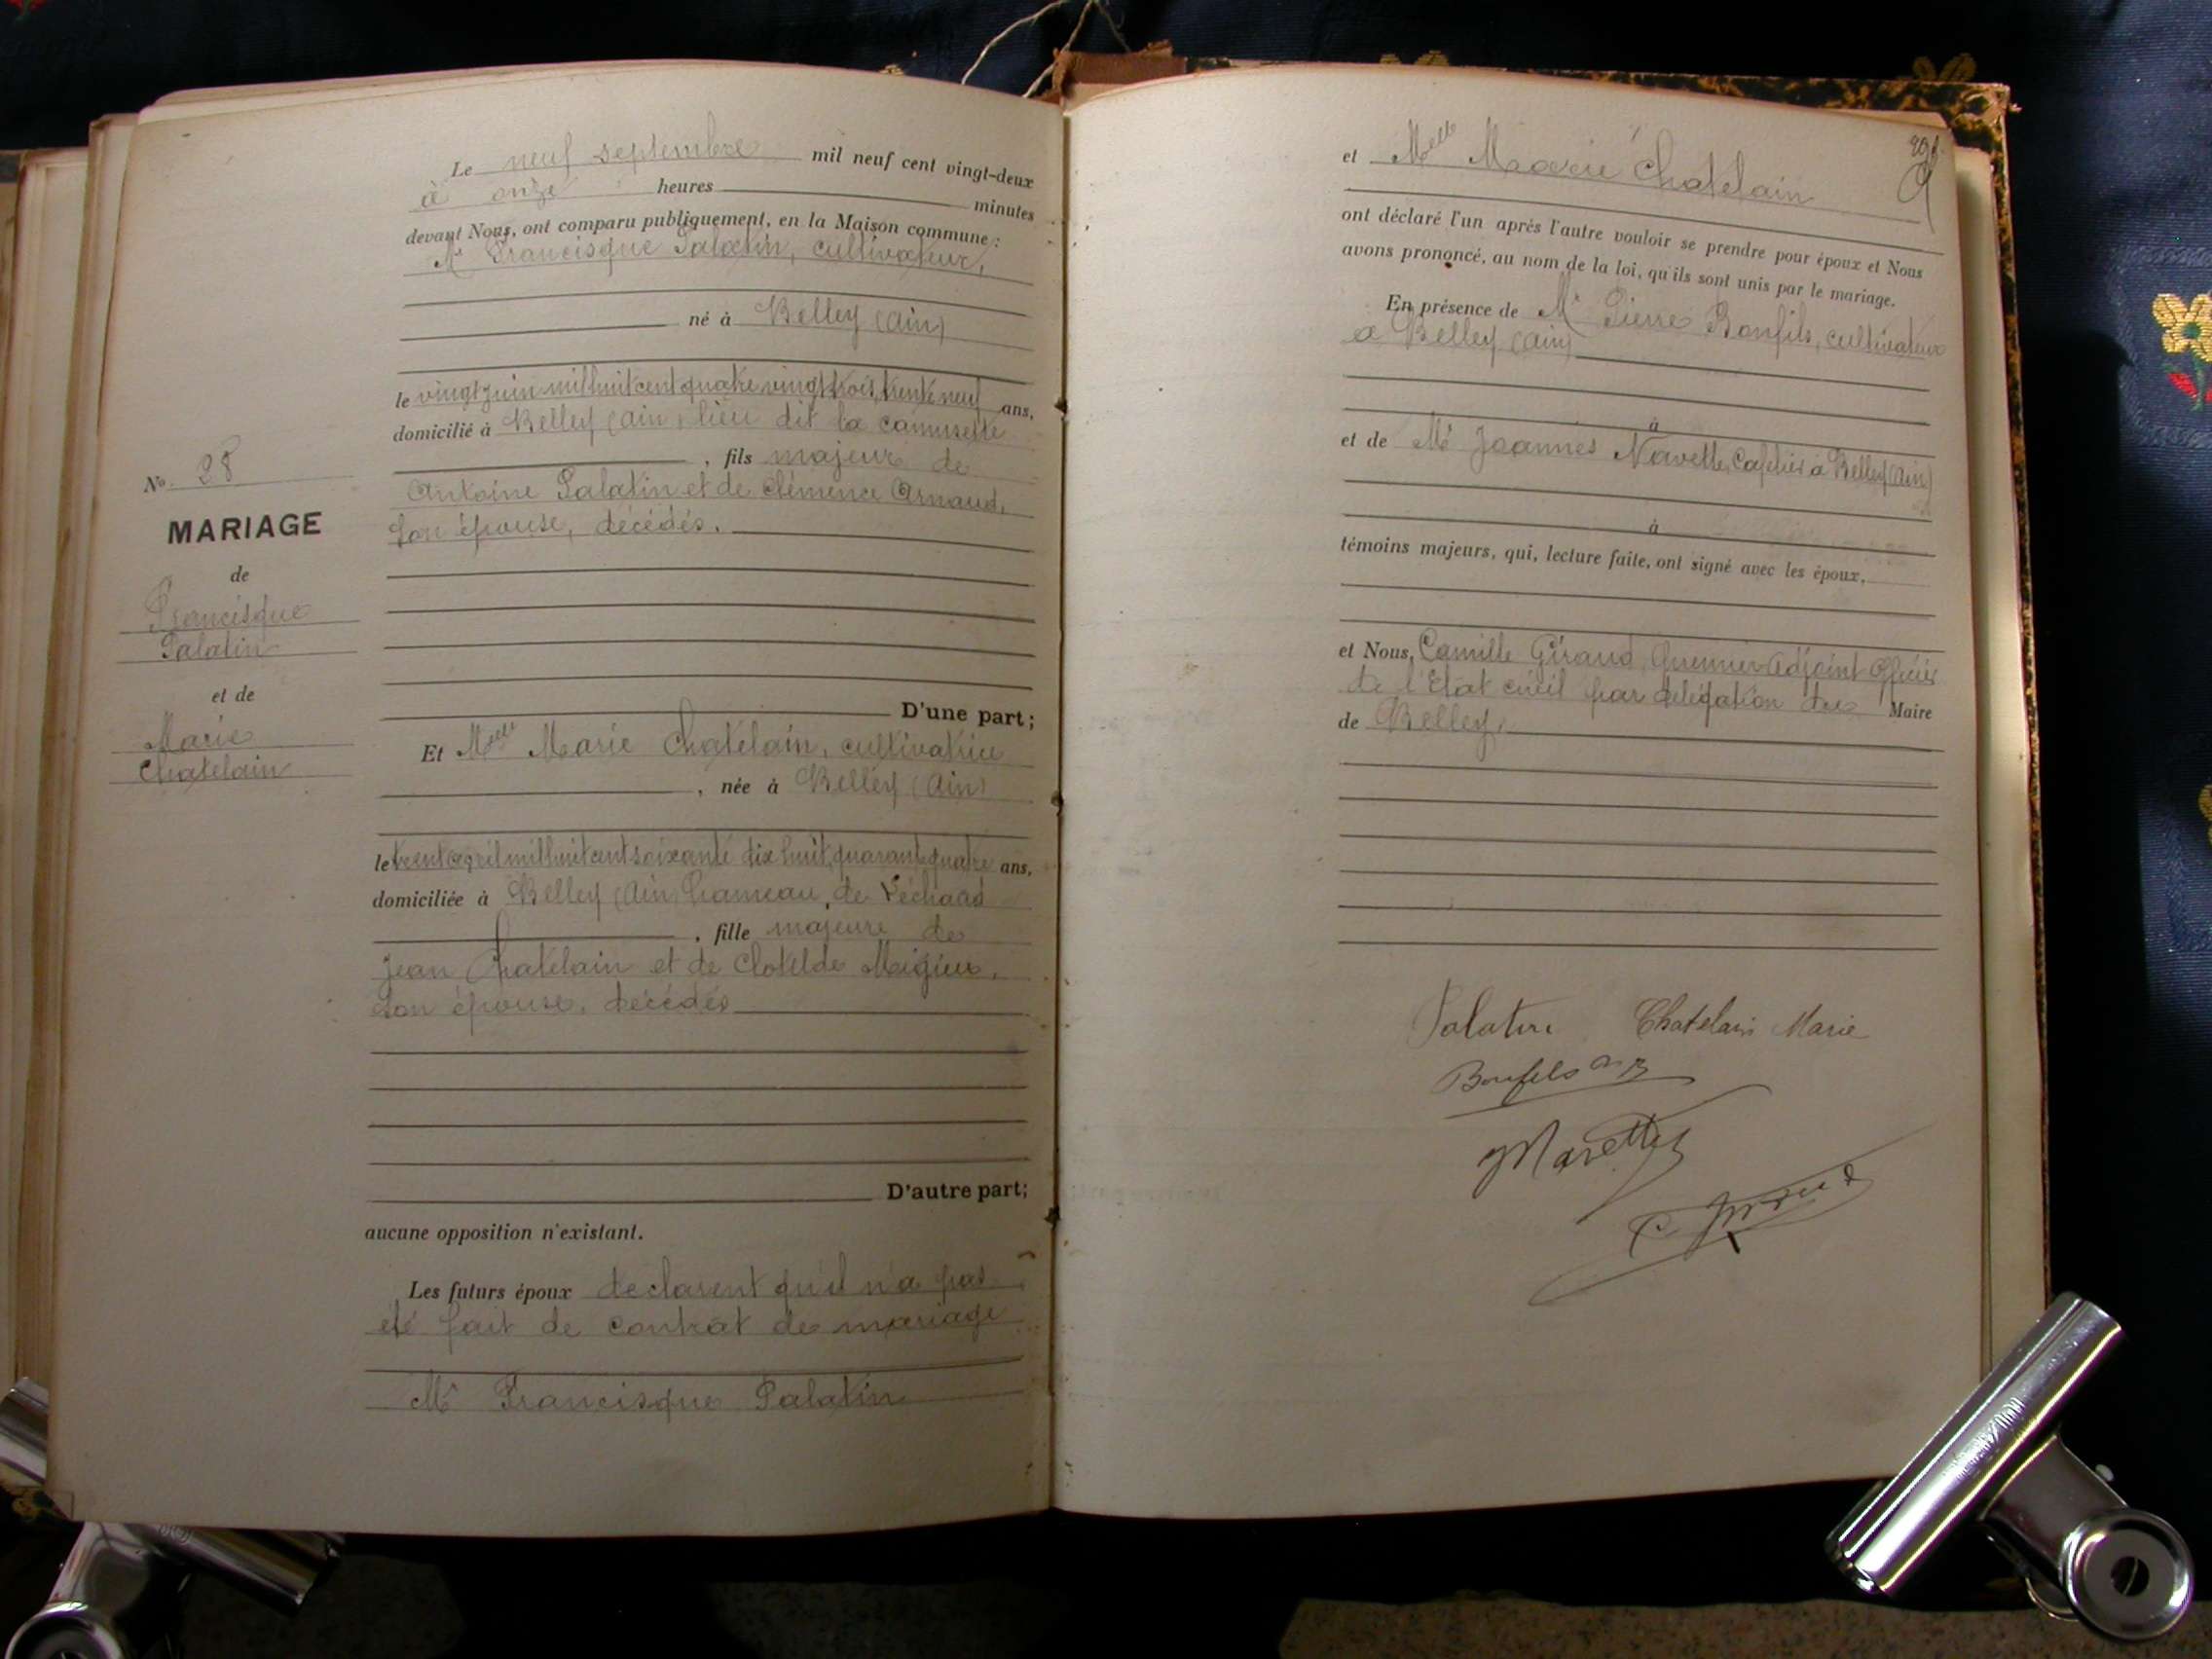 Le neuf septembre mil neuf cent vingt-deux
à onze heures minutes
devant Nous, ont comparu publiquement, en la Maison commune :
Mr Francisque Palatin, cultivateur,
né à Belley (Ain)
le vingt juin mil huit cent quatre vingt trois, trente neuf ans,
domicilié à Belley (Ain) lieu dit la
, fils majeur de
Antoine Palatin et de Clémence Arnaud,
son épouse, décédés.
No 28
MARIAGE
de
Francisque
Palatin
et de
Marie
Chatelain
D'une part ;
Et Melle Marie Chatelain, cultivatrice
, née à Belley (Ain)
le trente avril mil huit cent soixante dix huit, quarante quatre ans,
domiciliée à Belley (Ain) hameau de
, fille majeure de
Jean Chatelain et de Clotilde
son épouse, décédés
D'autre part ;
aucune opposition n'existant.
Les futurs époux déclarent qu'il n'a pas
été fait de contrat de mariage
Mr Francisque Palatin
et Melle Marie Chatelain
ont déclaré l'un après l'autre vouloir se prendre pour époux et Nous
avons prononcé, au nom de la loi, qu'ils sont unis par le mariage.
En présence de Mr Pierre Bonfils, cultivateur
à Belley (Ain)
à
et de Mr Joannès Navette, Cafetier à Belley (Ain)
à
témoins majeurs, qui, lecture faite, ont signé avec les époux,
et Nous, Camille Giraud, premier adjoint officier
de l'Etat civil par délégation du Maire
de Belley,
Palatin Chatelain Marie
Bonfils
Navette
C Giraud